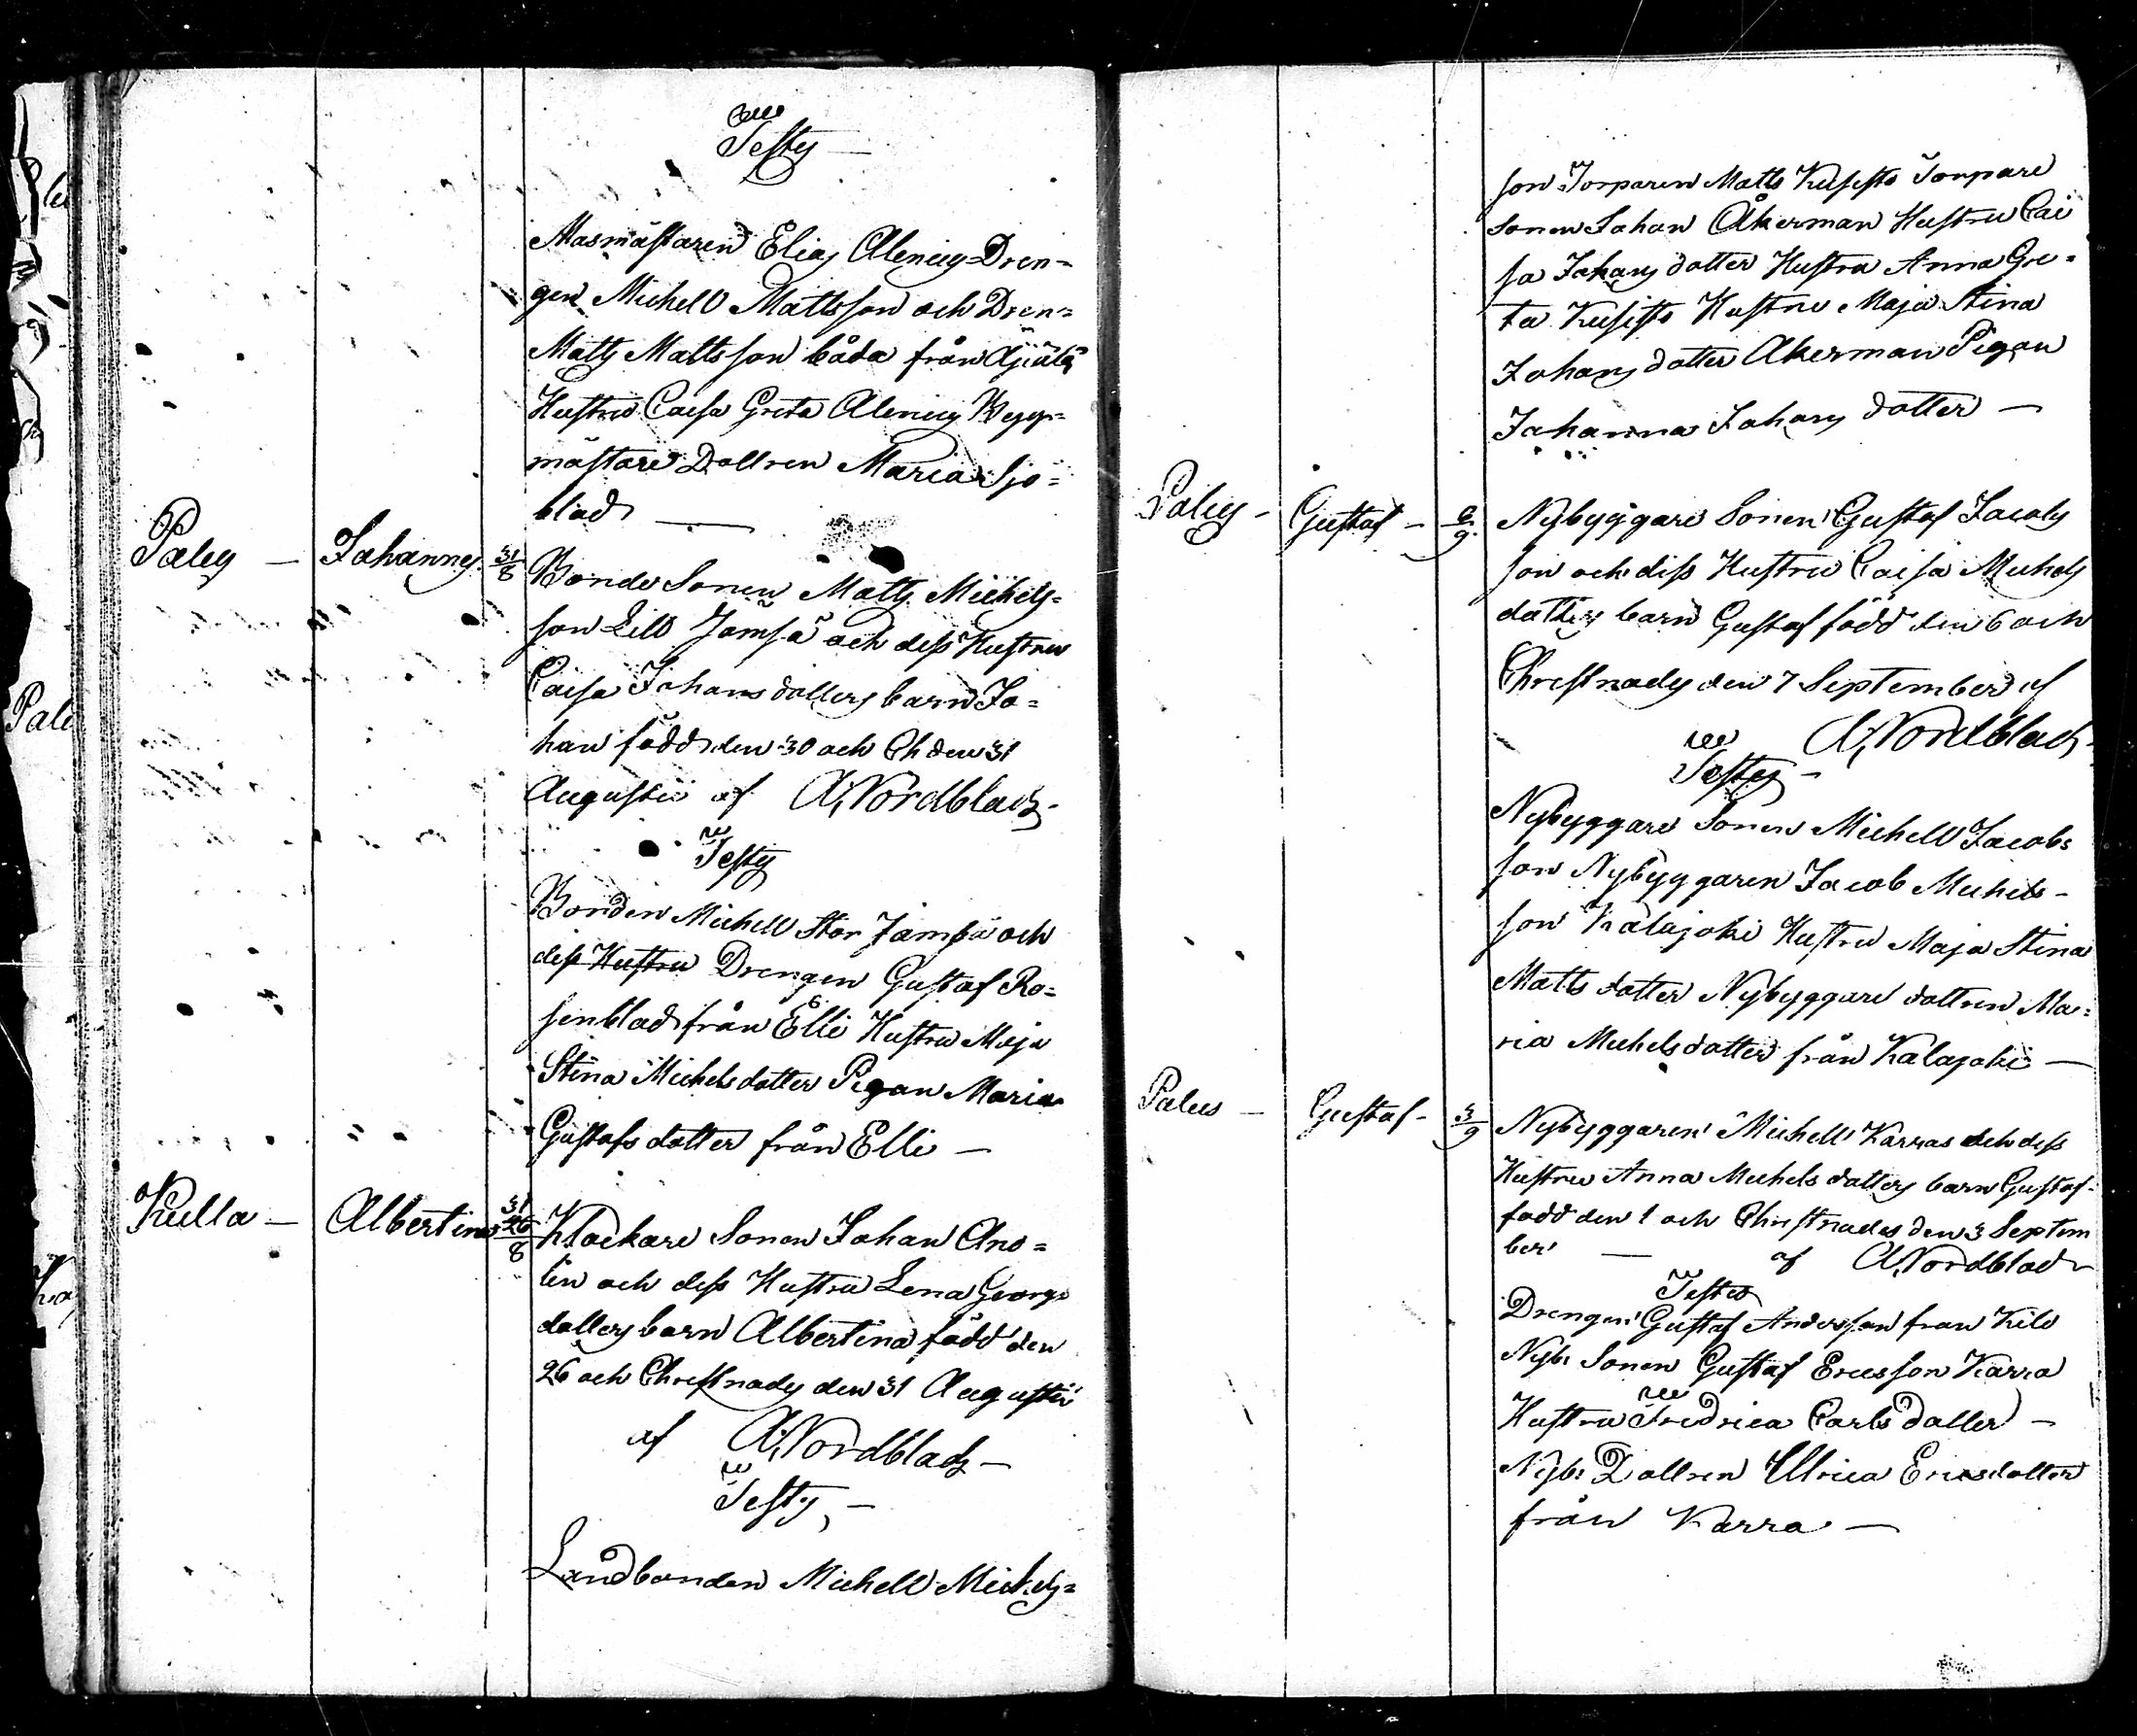 Testes —
Masmästaren Elias Alenius Dren=
gen Michell Mattsson och Dren=
Matts Mattsson båda från
Hustru Caisa Greta Alenius Bygg=
mästare Dottren Maria Sjö=
blad —
Palus — Johannes 31/8 Bonde Sonen Matts Michels=
son Lill Jamsä och dess Hustru
Caisa Johansdotters barn Jo=
han född den 30 och Ch den 31
Augusti af A. Nordblad
Testes
Bonden Michell Stor Jamsä och
dess Hustru Drengen Gustaf Ro=
senblad från Elli Hustru Maja
Stina Michelsdotter Pigan Maria
Gustafsdotter från Elli —
Kulla — Albertina 31/26/8 Klockare Sonen Johan Ano=
lin och dess Hustru Lena Georgs
dotters barn Albertina född den
26 och Christnades den 31 Augusti
af A. Nordblad —
Testes —
Landbonden Michell Michels=
son Torparen Matts Kusisto Torpare
Sonen Johan Åkerman Hustru Cai
sa Johans dotter Hustru Anna Gre=
ta Kusisto Hustru Maja Stina
Johans dotter Åkerman Pigan
Johanna Johans dotter —
Palus — Gustaf — 6/9 Nybyggare Sonen Gustaf Jacobs
son och dess Hustru Caisa Michels
dotters barn Gustaf född den 6 och
Christnades den 7 September af
A. Nordblad
Testes —
Nybyggare Sonen Michell Jacobs
son Nybyggaren Jacob Michels-
son Kalajoki Hustru Maja Stina
Matts dotter Nybyggare dottren Ma=
ria Michelsdotter från Kalajoki —
Palus — Gustaf — 3/9 Nybyggaren Michell Karras och dess
Hustru Anna Michels dotters barn Gustaf
född den 1 och Christnades den 3 Septem
ber — af A. Nordblad
Testes
Drengen Gustaf Andersson fran Kilo
Nyb: Sonen Gustaf Ericsson Karra
Hustru Fredrica Carls dotter —
Nyb: Dottren Ulrica Ericsdotter
från Karra —